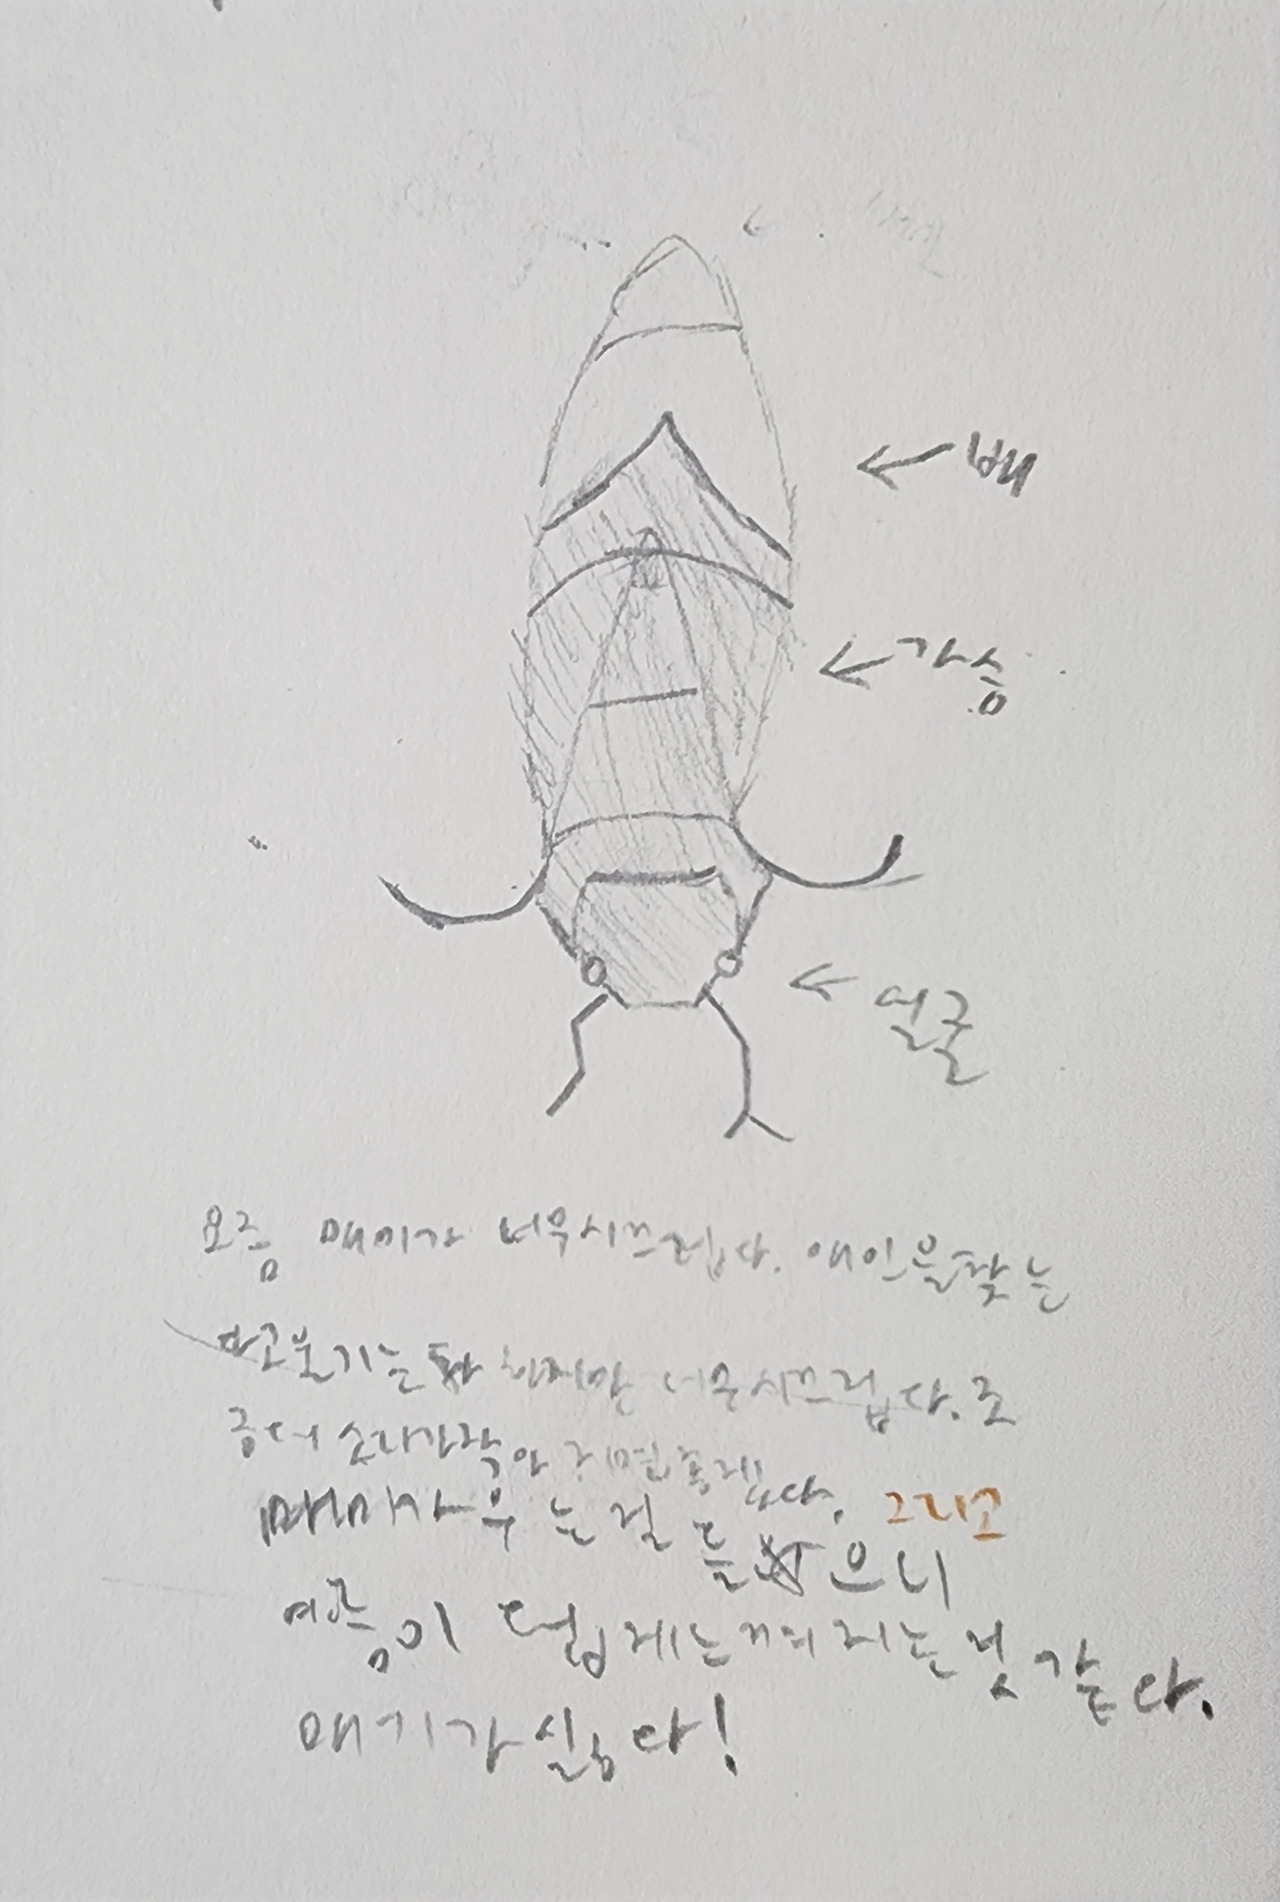 배
가슴
얼굴
요즘 매미가 너무시끄럽다. 애인을찾는
라고불기는 하지만 너무시끄럽다. 조
금더 소리가작아 면좋겠다.
매미가우는걸 들 으니 그리고
여름이 덥게느껴지는것 같다.
매미가싫다!